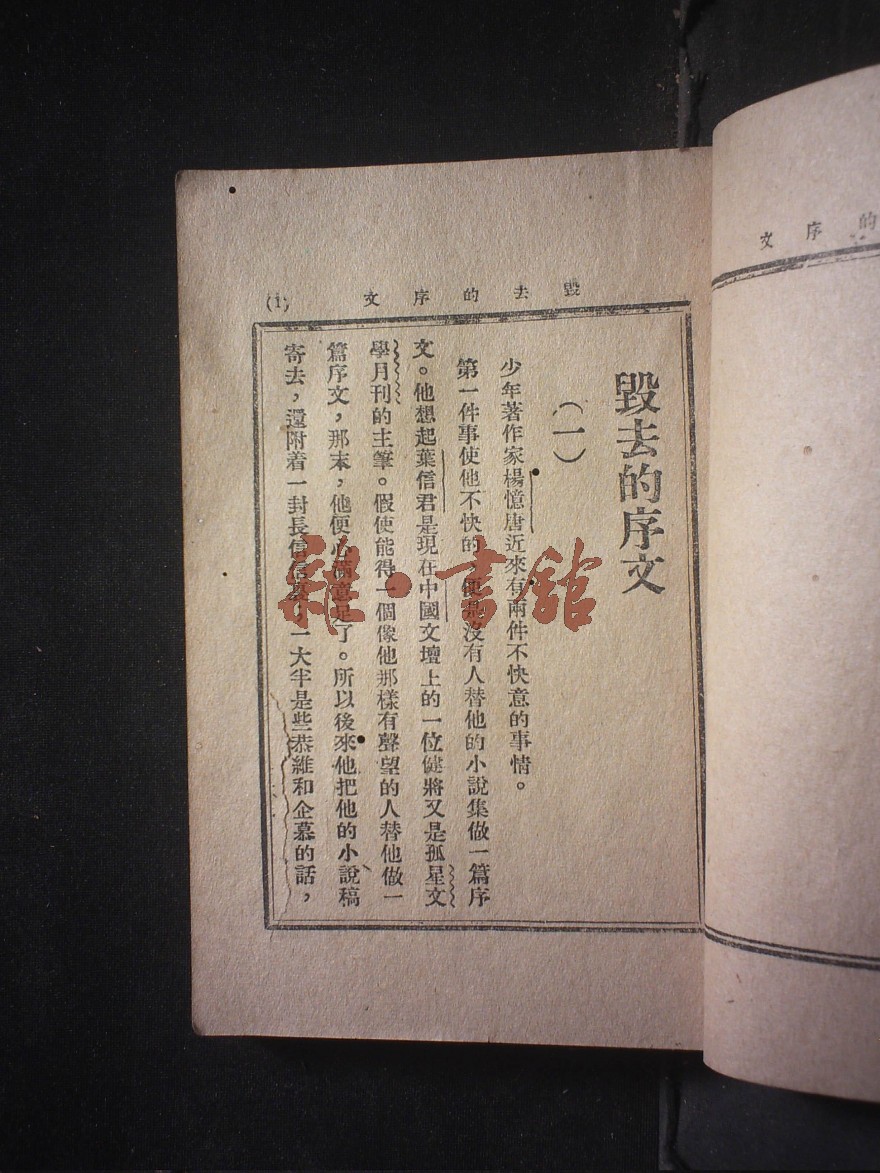 毀去的序文
(1)
毀去的序文
（一）
少年著作家楊憶唐近來有兩件不快意的事情。
第一件事使他不快的，便是沒有人替他的小說集做一篇序
文。他想起葉信君是現在中國文壇上的一位健將又是孤星文
學月刊的主筆。假使能得一個像他那樣有聲望的人替他做一
篇序文，那末，他便心滿意足了。所以後來他把他的小說稿
寄去，還附着一封長信信裏，一大半是些恭維和企慕的話，
的序文
雜·書館